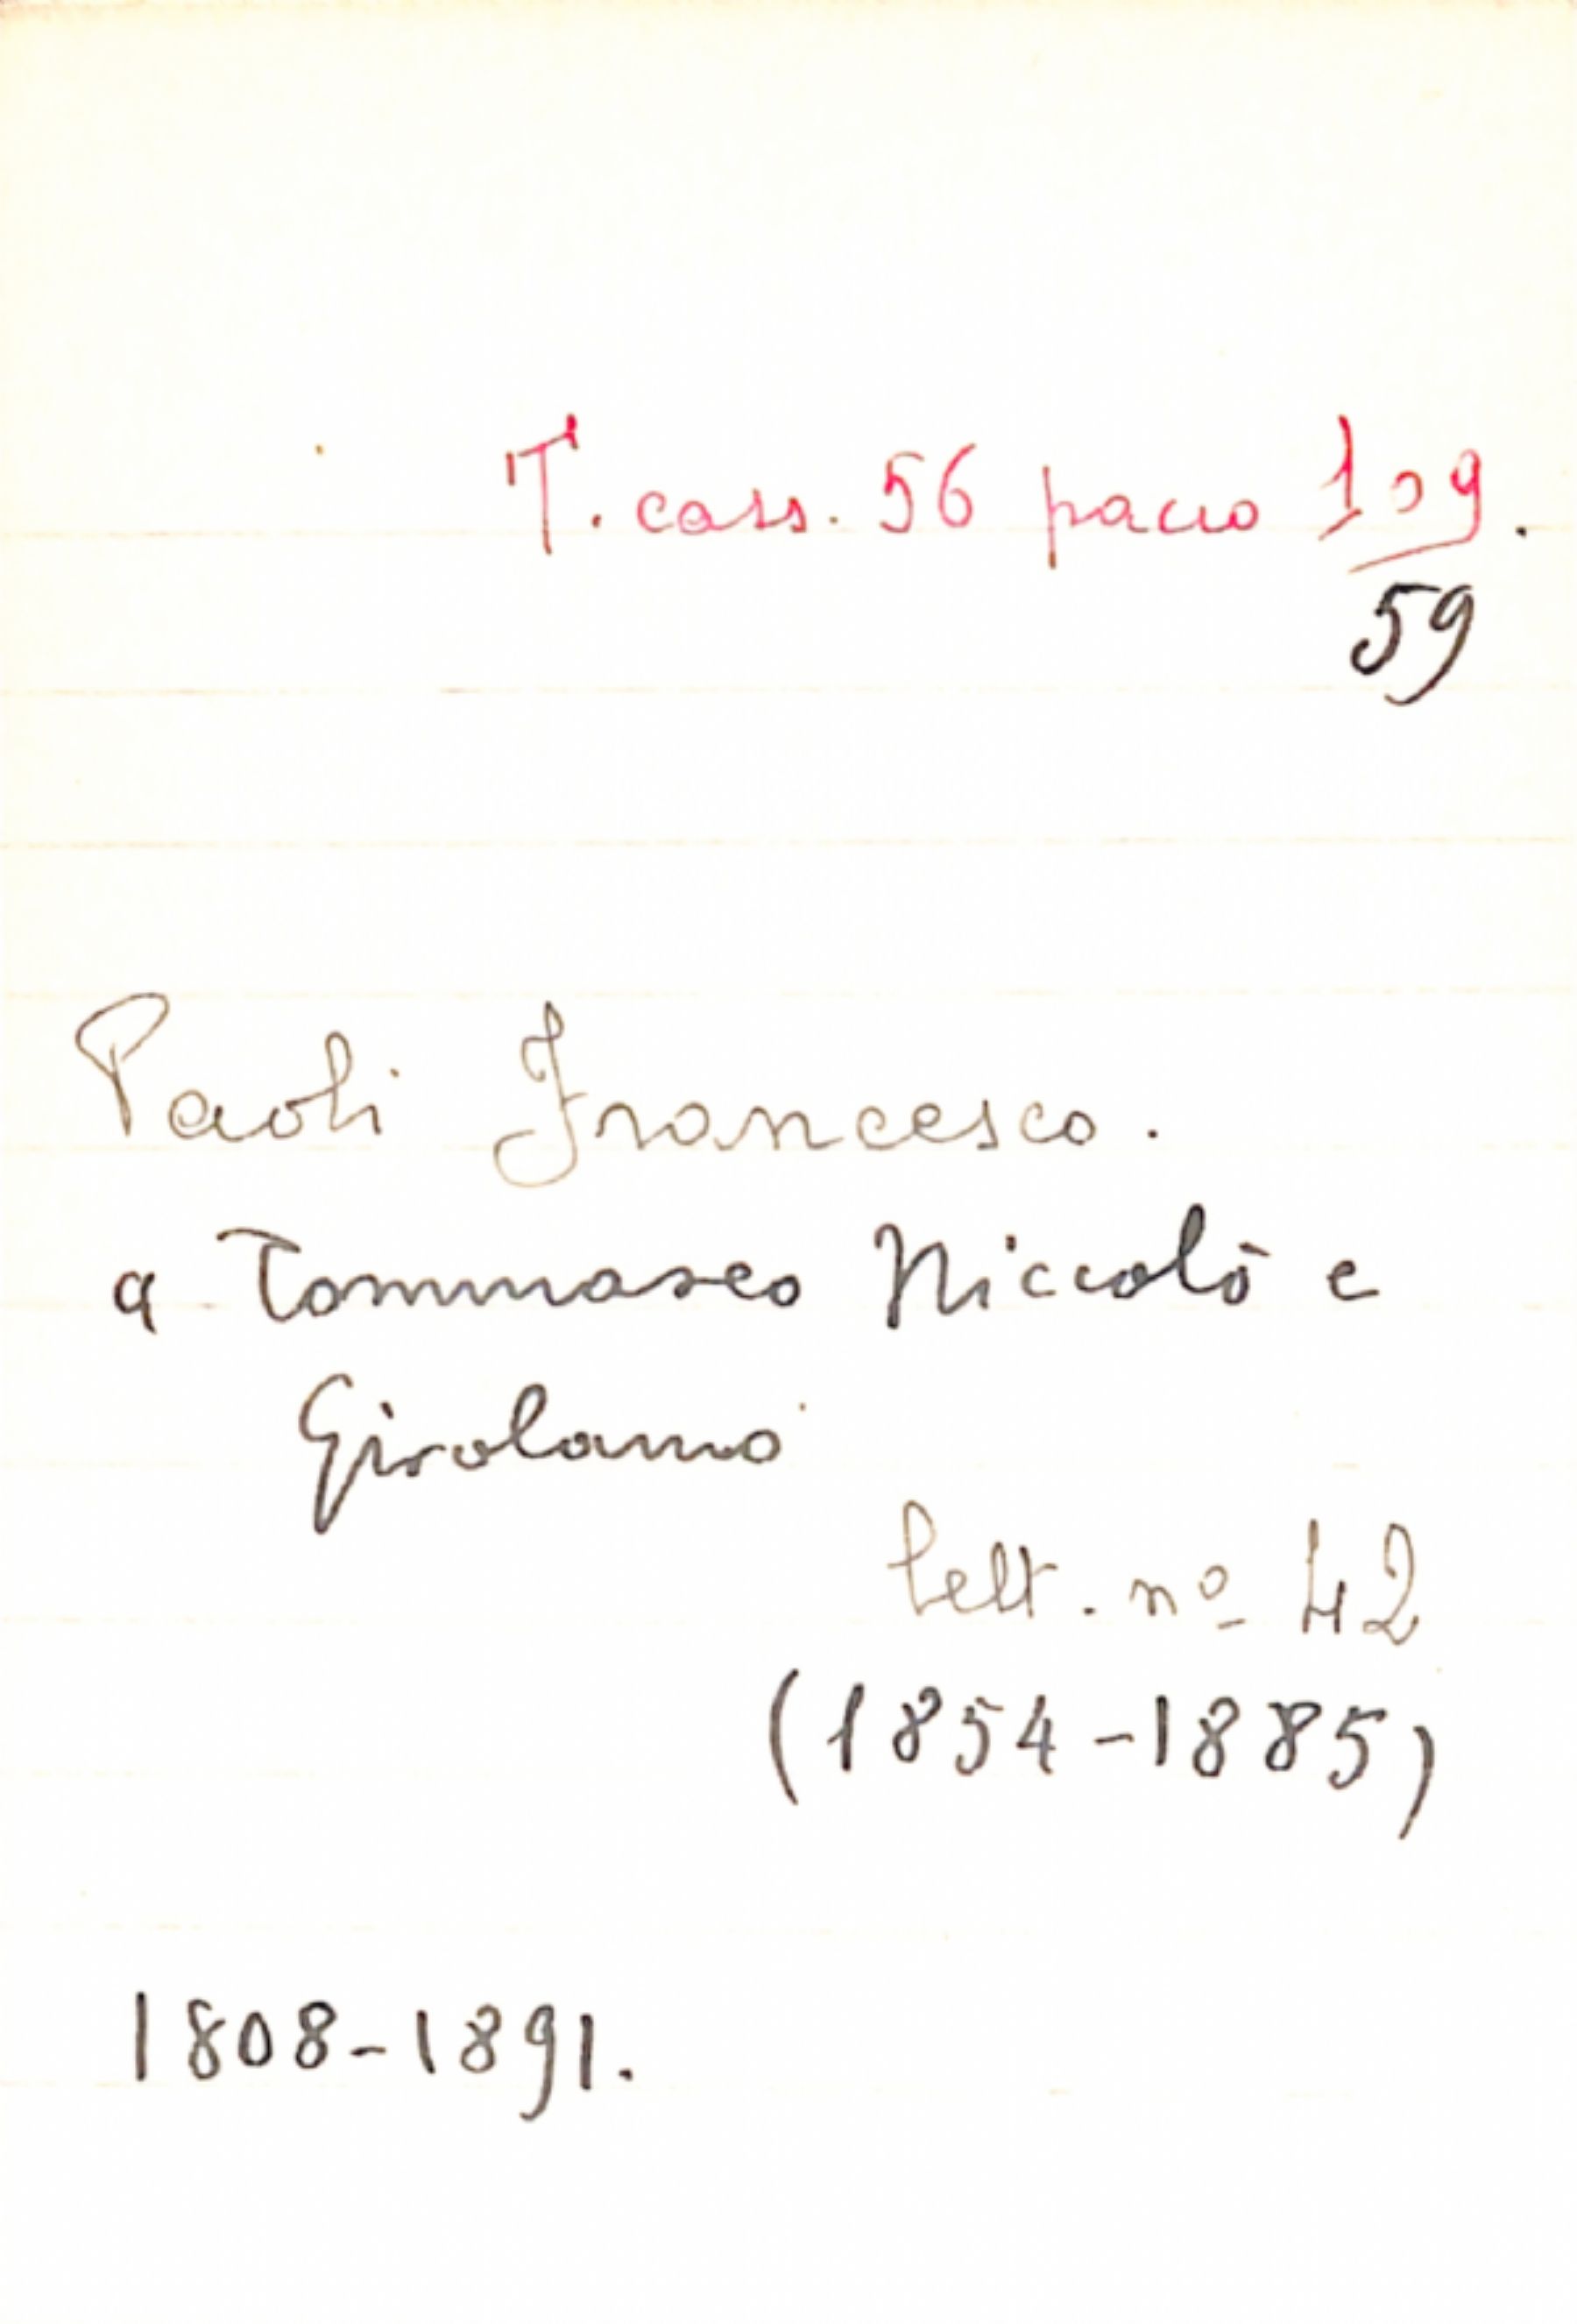 T. cass. 56 pacco 109.
59
Paoli Francesco.
a Tommaseo Niccolò e
Girolamo
lett. nº 42
(1854-1885)
1808-1891.